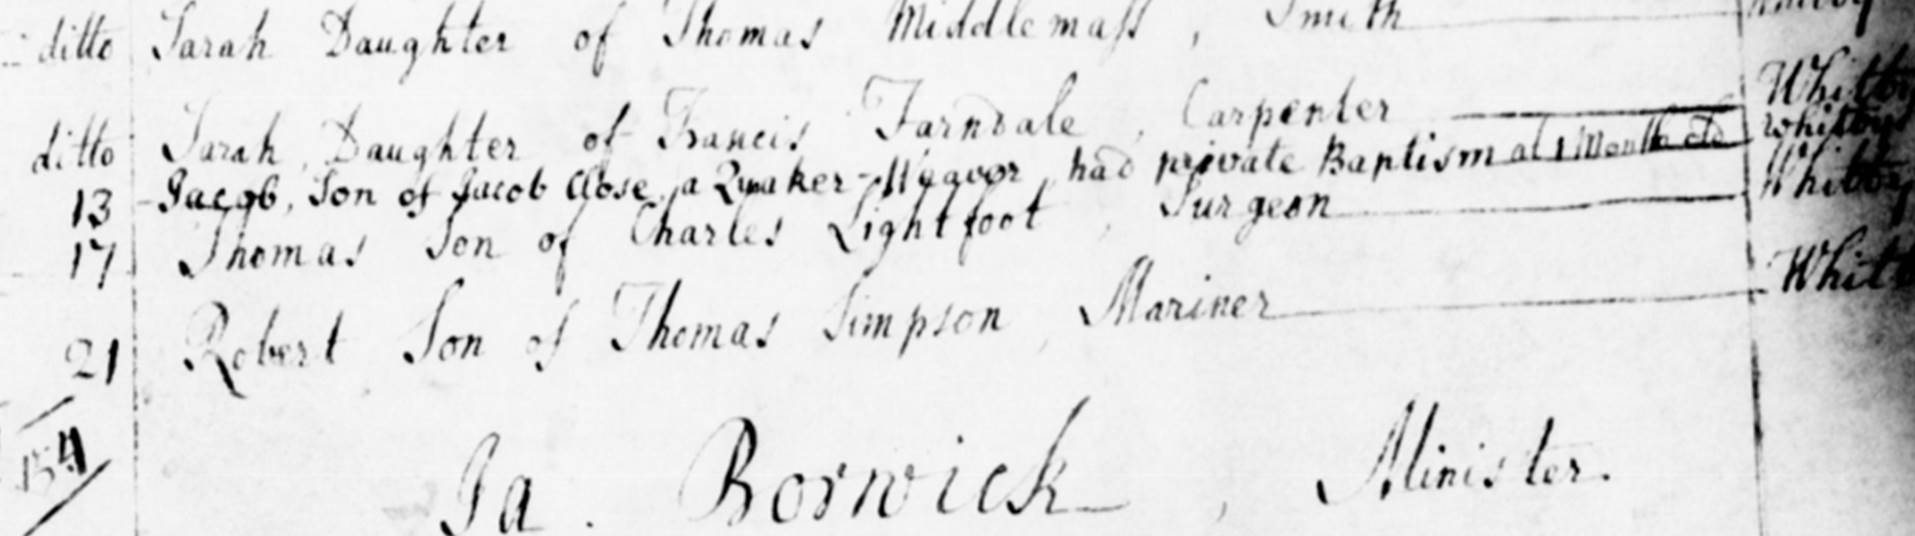 ditto Sarah Daughter of Thomas Middlemass, Smith
ditto Sarah, Daughter of Francis Farndale, Carpenter Whitby
13 Jacob, Son of Jacob Close, a Quaker-Weaver, had private Baptism at 1 Month old Whitby
17 Thomas Son of Charles Lightfoot, Surgeon Whitby
21 Robert Son of Thomas Simpson, Mariner Whit
154
Ja. Borwick, Minister.